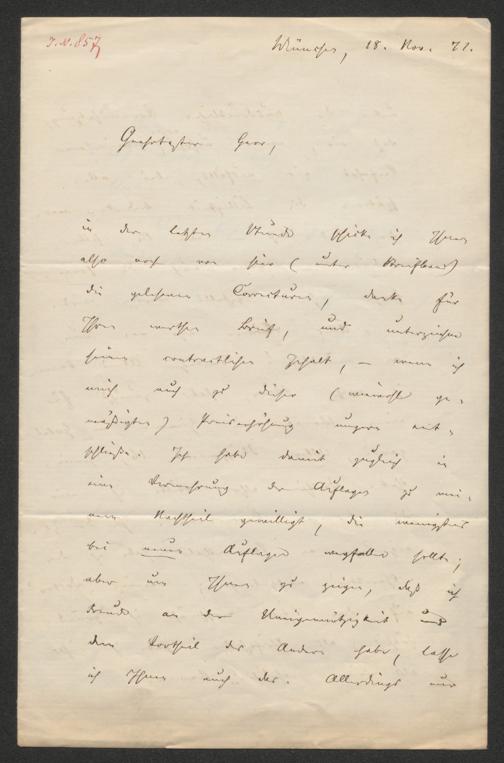 J.N. 857
München, 18. Nov. 72.
Geehrtester Herr,
in der letzten Stunde schicke ich Ihnen
also noch von hier (unter Kreuzband)
die gelesenen Correcturen, danke für
Ihren werthen Brief, und unterzeichne
seinen contractlichen Gehalt, – wenn ich
mich auch zu dieser (wiewohl ge-
mäßigten) Preiserhöhung ungern ent-
schließe. Ich habe damit zugleich in
eine Vermehrung der Auflage zu mei-
nem Nachtheil gewilligt, die wenigstens
bei neuen Auflagen wegfallen sollte;
aber um Ihnen zu zeigen, daß ich
Freude an der Uneigennützigkeit und
dem Vortheil des Andern habe, lasse
ich Ihnen auch das. Allerdings nur